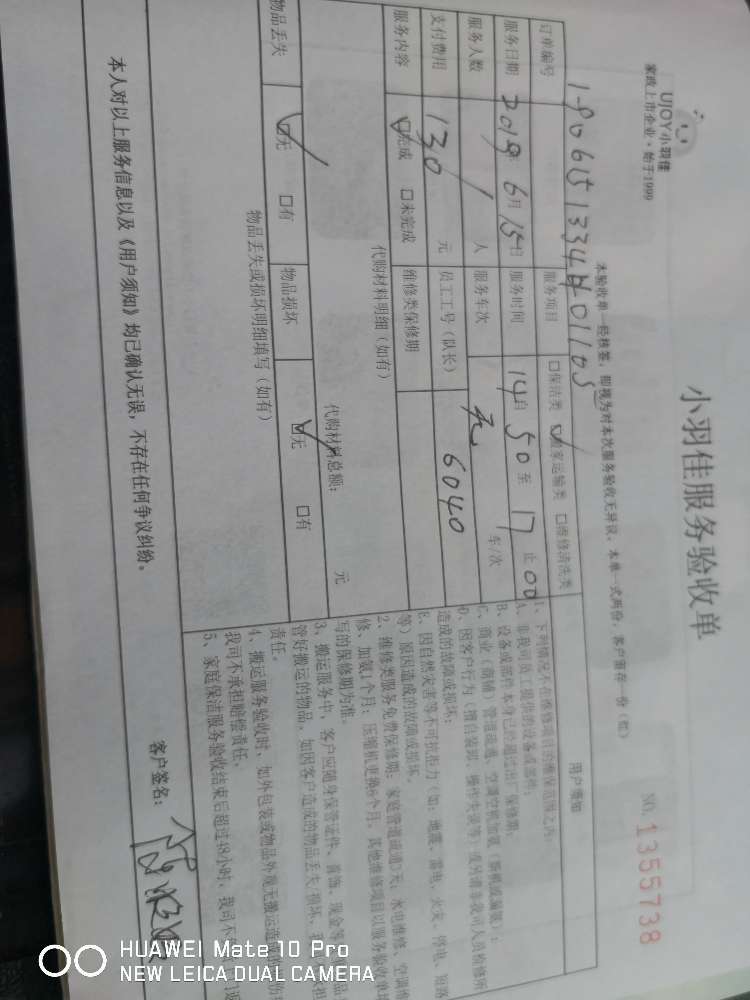 UJOY小羽佳
家政上市企业·始于1999
小羽佳服务验收单
NO. 1355738
本验收单一经核签，即视为对本次服务验收无异议，本单一式两份，客户留存一份（红）
订单编号
服务项目 □保洁类 ☑搬家运输类 □维修清洗类
服务日期 2019年6月15日 服务时间 14自50至17止00
服务人数 人 服务车次 车/次
支付费用 130元 员工工号（队长） 6040
服务内容 ☑完成 □未完成 维修类保修期
代购材料明细（如有）
代购材料总额： 元
物品丢失 ☑无 □有 物品损坏 ☑无 □有
物品丢失或损坏明细填写（如有）
用户须知
1、下列情况不在维修项目的维保范围之内：
A、非我司员工提供的设备或部件；
B、设备或部件本身已经超过出厂保修期；
C、商业（商铺）管道疏通、空调空机加氨（断裂或漏氨）；
D、因客户行为（擅自装卸、操作失误等）或另请非我司人员检修所
造成的故障或损坏；
E、因自然灾害等不可抗拒力（如：地震、雷电、火灾、停电、短路
等）原因造成的故障或损坏。
2、维修类服务免费保修期：家庭管道疏通7天，水电维修、空调维
修、加氨1个月；压缩机更换6个月，其他维修项目以服务验收单填
写的保修期为准。
3、搬运服务中，客户应随身保管证件、首饰、现金等
管好搬运的物品，如因客户造成的物品丢失、损坏，
责任。
4、搬运服务验收时，如外包装或物品外观无搬运造
我司不承担赔偿责任。
5、家庭保洁服务验收结束后超过48小时，我司不
本人对以上服务信息以及《用户须知》均已确认无误，不存在任何争议纠纷。
客户签名：
HUAWEI Mate 10 Pro
NEW LEICA DUAL CAMERA